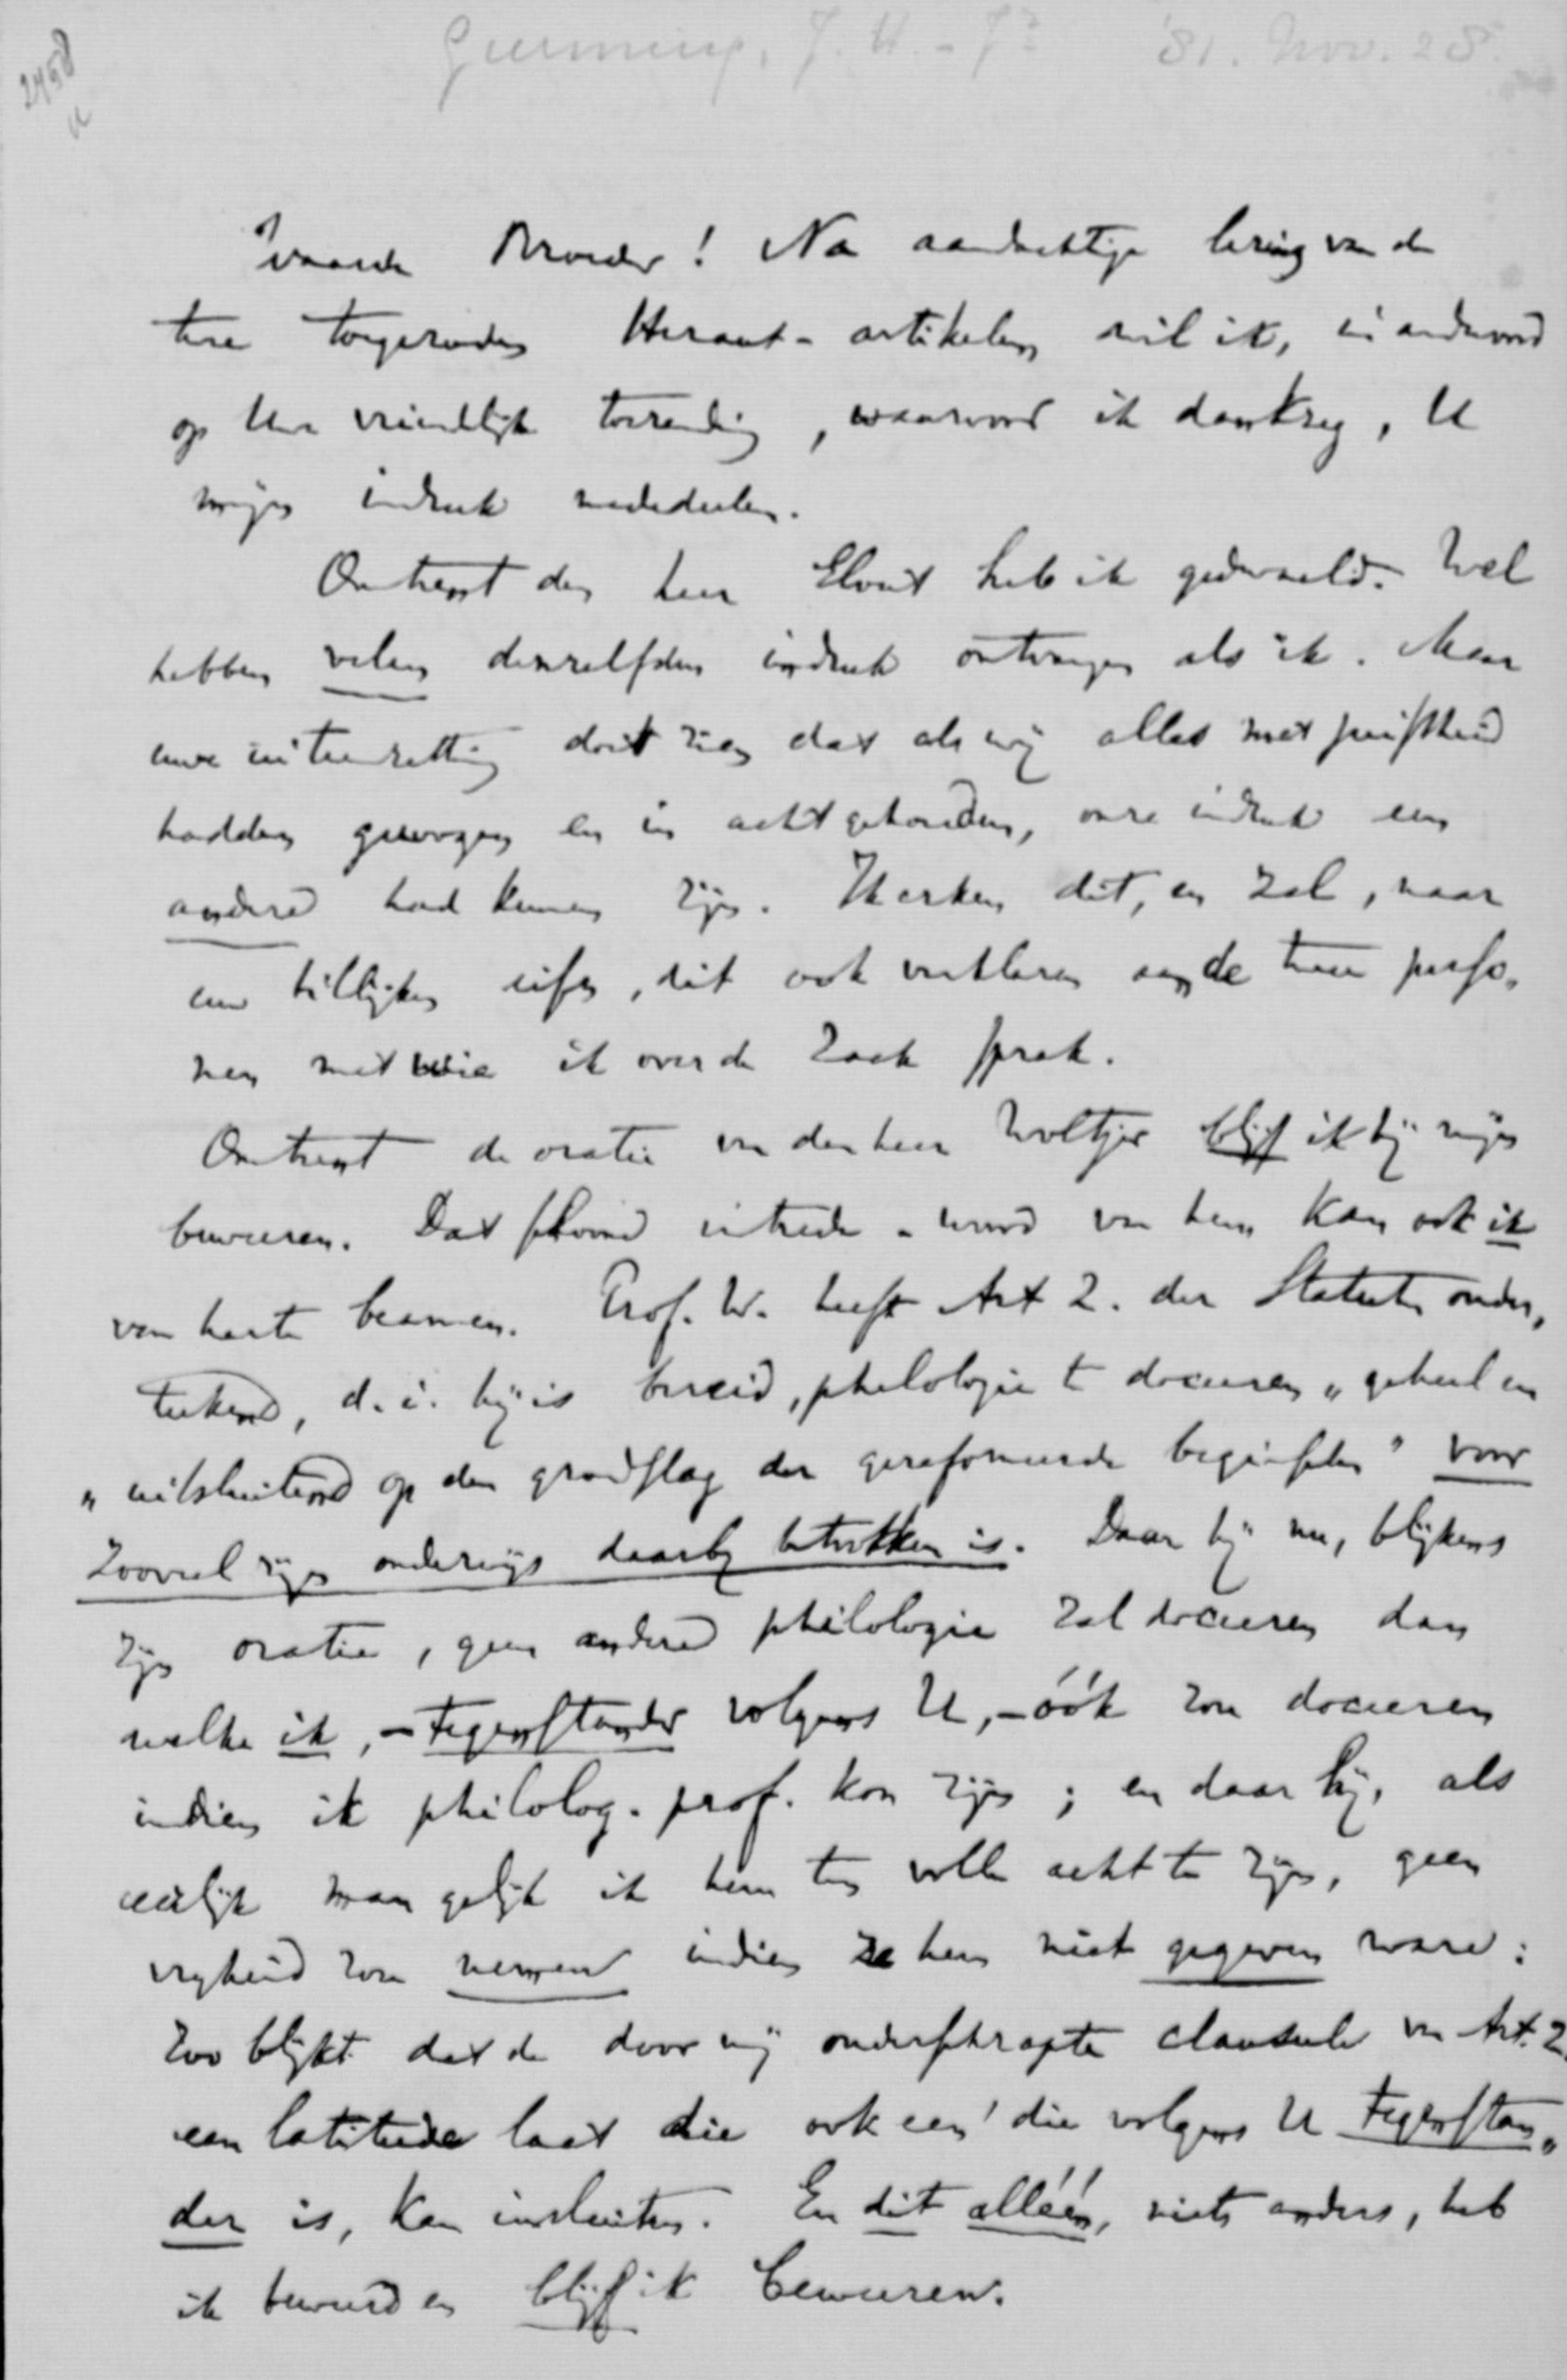 2458
a
Gunning, J. H. - Jr '81. Nov. 28.
Waarde Broeder! Na aandachtige lezing van de
twee toegezonden Heraut-artikelen wil ik, in antwoord
op Uwe vriendelijke toezending, waarvoor ik dankzeg, U
mijn indruk mededeelen.
Omtrent den heer Elout heb ik gedwaald. Wel
hebben velen denzelfden indruk ontvangen als ik. Maar
uwe uiteenzetting doet zien dat als wij alles met juistheid
hadden gewogen en in acht gehouden, onze indruk een
andere had kunnen zijn. Ik erken dit, en zal, naar
uw billijken eisch, dit ook verklaren aan de twee perso„
nen met wie ik over de zaak sprak.
Omtrent de oratie van den heer Woltjer blijf ik bij mijn
beweren. Dat schoone intrede-woord van hem kan ook ik
van harte beamen. Prof. W. heeft Art 2. der Statuten onder„
teekend, d. i. hij is bereid, philologie te doceeren „geheel en
„uitsluitend op den grondslag der gereformeerde beginselen" voor
zooveel zijn onderwijs daarbij betrokken is. Daar hij nu, blijkens
zijn oratie, geen andere philologie zal doceeren dan
welke ik, - tegenstander volgens U, - óók zou doceeren
indien ik philolog. prof. kon zijn; en daar hij, als
eerlijk man gelijk ik hem ten volle acht te zijn, geen
vrijheid zou nemen indien ze hem niet gegeven ware:
zoo blijkt dat de door mij onderschrapte clausule van Art. 2
een latitude laat die ook een' die volgens U tegenstan„
der is, kan insluiten. En dit alléén, niets anders, heb
ik beweerd en blijf ik beweeren.